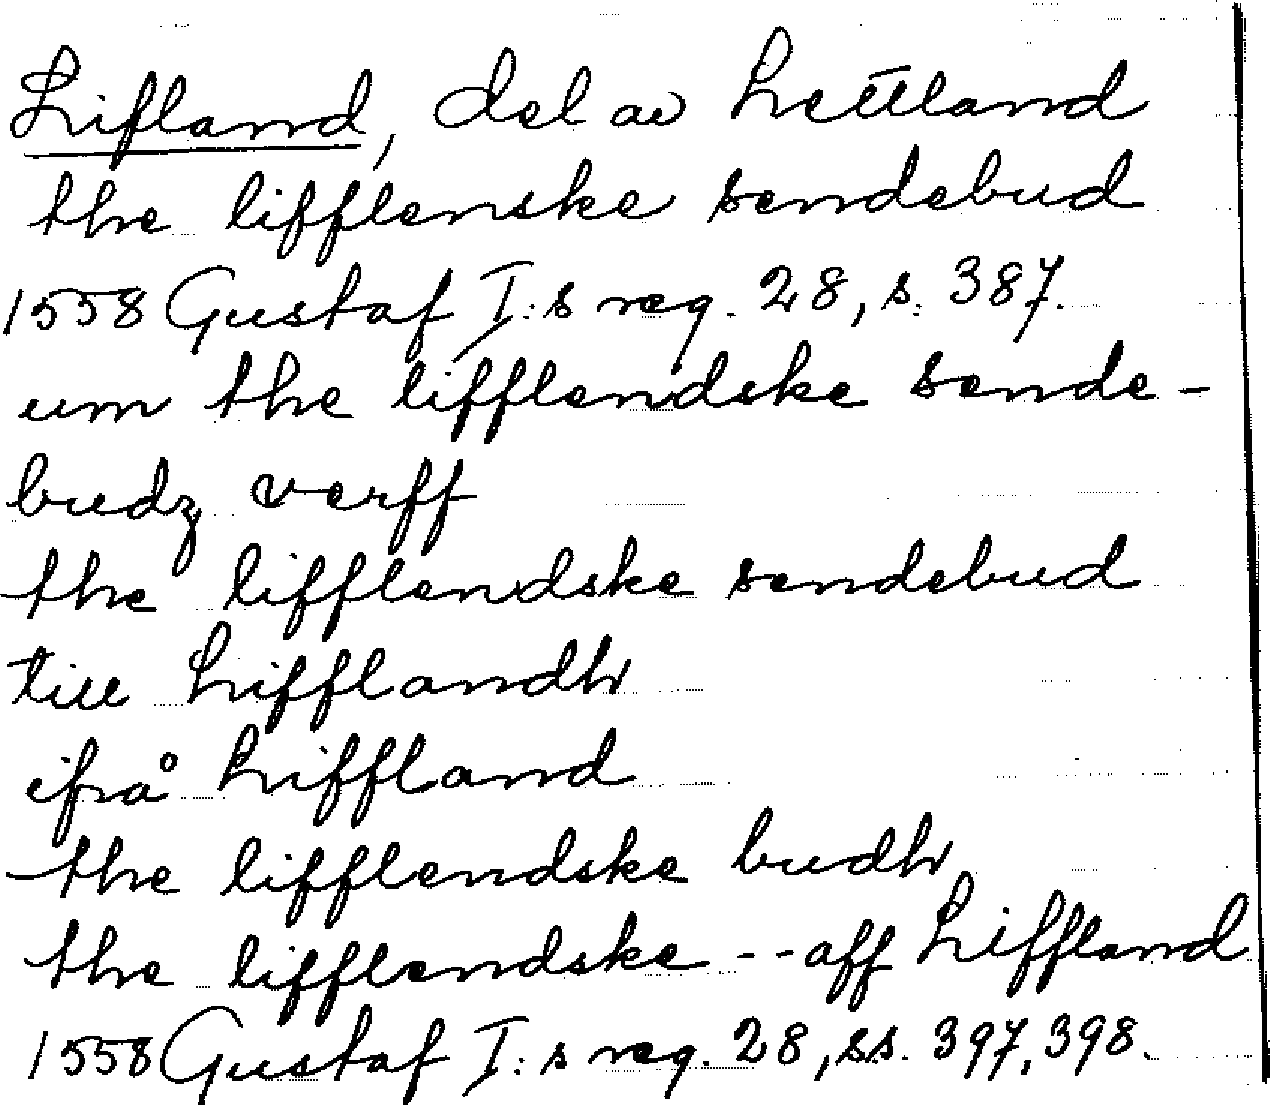 Lifland, del av Lettland
the lifflenske sendebud
1558 Gustaf I:s reg. 28, s. 387.
um the lifflendske sende-
budz verff
the lifflendske sendebud
till Lifflandh
ifrå Liffland
the lifflendske budh
the lifflendske -- aff Liffland
1558 Gustaf I:s reg. 28, ss. 397, 398.